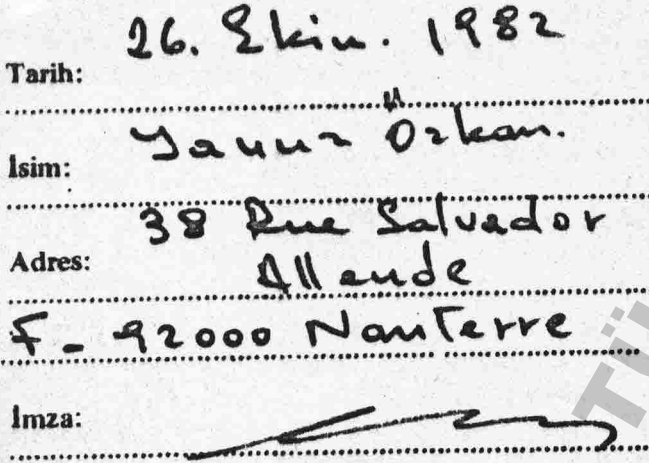 Tarih: 26. Ekim. 1982
İsim: Yavuz Özkan.
Adres: 38 Rue Salvador
Allende
F-92000 Nanterre
İmza:
TÜ